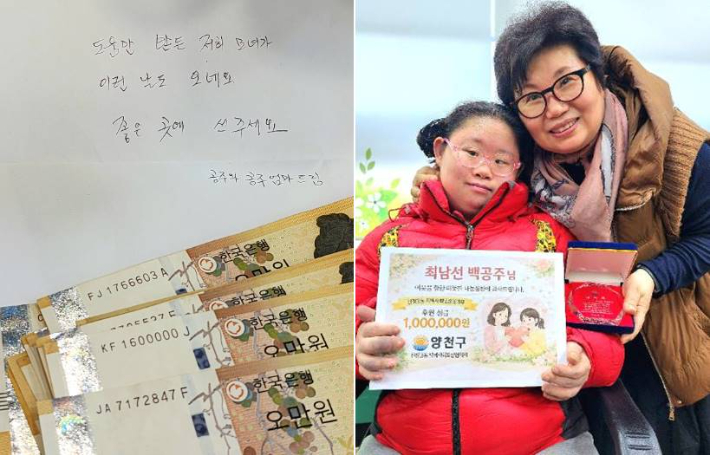 도움만 받든 저희 모녀가
이런 날도 오네요
좋은 곳에 쓰주세요
공주와 공주 엄마 드림
한국은행
FJ 1766603 A
KF 1600000 J
오만원
한국은행
JA 7172847 F
오만원
최남선 백공주님
후원 성금
1,000,000원
양천구